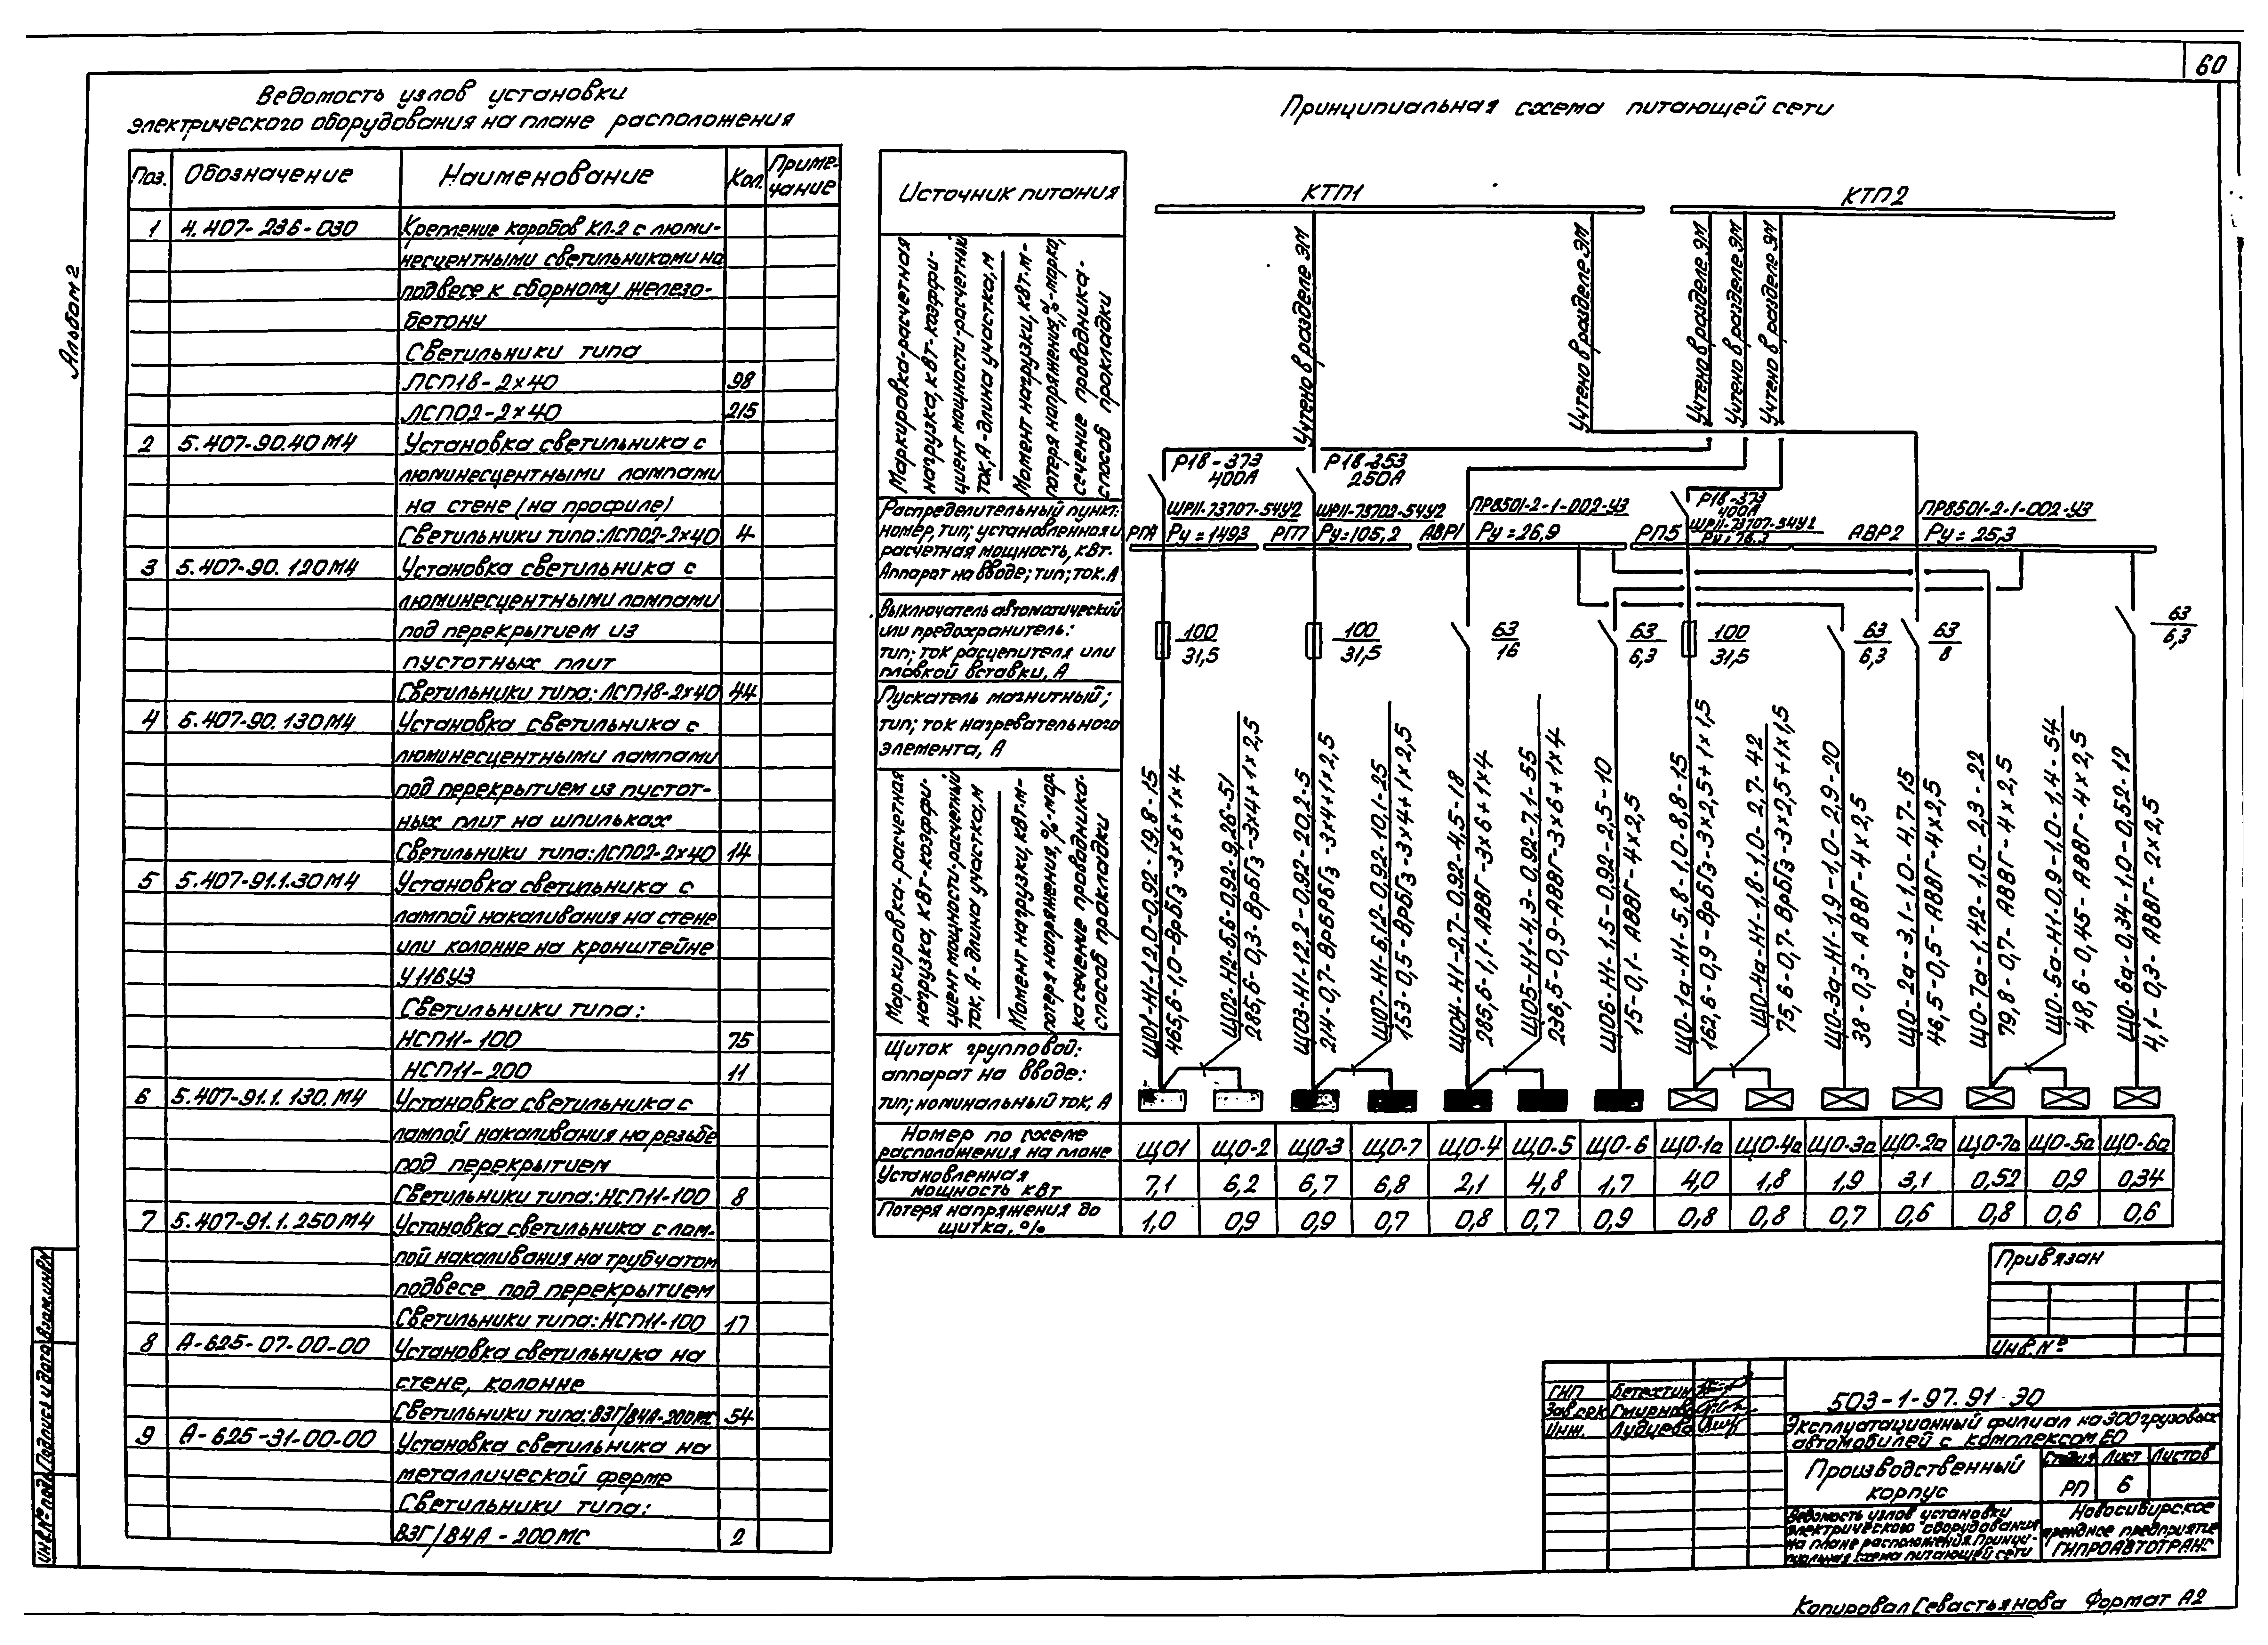 60
Альбом 2
Ведомость узлов установки
электрического оборудования на плане расположения
Поз.
Обозначение
Наименование
Кол.
Приме-
чание
1 4.407-236-030 Крепление коробов КЛ-2 с люми-
несцентными светильниками на
подвесе к сборному железо-
бетону
Светильники типа
ЛСП18-2×40 98
ЛСП02-2×40 215
2 5.407-90.40МЧ Установка светильника с
люминесцентными лампами
на стене (на профиле)
Светильники типа: ЛСП02-2×40 4
3 5.407-90.120МЧ Установка светильника с
люминесцентными лампами
под перекрытием из
пустотных плит
Светильники типа: ЛСП18-2×40 44
4 5.407-90.130МЧ Установка светильника с
люминесцентными лампами
под перекрытием из пустот-
ных плит на шпильках
Светильники типа: ЛСП02-2×40 14
5 5.407-91.1.30МЧ Установка светильника с
лампой накаливания на стене
или колонне на кронштейне
У116У3
Светильники типа:
НСП11-100 75
НСП11-200 11
6 5.407-91.1.130.МЧ Установка светильника с
лампой накаливания на резьбе
под перекрытием
Светильники типа: НСП11-100 8
7 5.407-91.1.250МЧ Установка светильника с лам-
пой накаливания на трубчатом
подвесе под перекрытием
Светильники типа: НСП11-100 17
8 А-625-07-00-00 Установка светильника на
стене, колонне
Светильники типа: ВЗГ/В4А-200МС 54
9 А-625-31-00-00 Установка светильника на
металлической ферме
Светильники типа:
ВЗГ/В4А-200МС 2
Принципиальная схема питающей сети
Источник питания
КТП1
КТП2
Маркировка-расчетная
нагрузка, кВт-коэффи-
циент мощности-расчетный
ток, А-длина участка, м
Момент нагрузки, кВт.м-
потеря напряжения, %-марка,
сечение проводника-
способ прокладки
Учтено в разделе ЭМ
Учтено в разделе ЭМ
Учтено в разделе ЭМ
Учтено в разделе ЭМ
Учтено в разделе ЭМ
Р18-373
400А
Р18-353
250А
Р18-373
400А
Распределительный пункт:
номер, тип; установленная и
расчетная мощность, кВт.
Аппарат на вводе; тип; ток. А
РП4 ШР11-73707-54У2
Ру=1493
РП7 ШР11-73702-54У2
Ру=105,2
АВР1 ПР8501-2-1-002-У3
Ру=26,9
РП5 ШР11-73707-54У2
Ру=76.3
АВР2 ПР8501-2-1-002-У3
Ру=25,3
Выключатель автоматический
или предохранитель:
тип; ток расцепителя или
плавкой вставки, А
100
31,5
100
31,5
63
16
63
6,3
100
31,5
63
6,3
63
8
63
6,3
Пускатель магнитный;
тип; ток нагревательного
элемента, А
Маркировка-расчетная
нагрузка, кВт-коэффи-
циент мощности-расчетный
ток, А-длина участка, м
Момент нагрузки, кВт.м-
потеря напряжения, %-мар-
ка сечение проводника-
способ прокладки
ЩО1-Н1-12,0-0,92-19,8-15
465,6-1,0-ВрбГз-3×6+1×4
ЩО2-Н2-5,6-0,92-9,26-51
285,6-0,3-ВрбГз-3×4+1×2,5
ЩО3-Н1-12,2-0,92-20,2-5
214-0,7-ВрбрбГз-3×4+1×2,5
ЩО7-Н1-6,12-0,92-10,1-25
153-0,5-ВрбГз-3×4+1×2,5
ЩО4-Н1-2,7-0,92-4,5-18
285,6-1,1-АВВГ-3×6+1×4
ЩО5-Н1-4,3-0,92-7,1-55
236,5-0,9-АВВГ-3×6+1×4
ЩО6-Н1-1,5-0,92-2,5-10
15-0,1-АВВГ-4×2,5
ЩО-1а-Н1-5,8-1,0-8,8-15
162,6-0,9-ВрбГз-3×2,5+1×1,5
ЩО-4а-Н1-1,8-1,0-2,7-42
75,6-0,7-ВрбГз-3×2,5+1×1,5
ЩО-3а-Н1-1,9-1,0-2,9-20
38-0,3-АВВГ-4×2,5
ЩО-2а-3,1-1,0-4,7-15
46,5-0,5-АВВГ-4×2,5
ЩО-7а-1,42-1,0-2,3-22
79,8-0,7-АВВГ-4×2,5
ЩО-5а-Н1-0,9-1,0-1,4-54
48,6-0,45-АВВГ-4×2,5
ЩО-6а-0,34-1,0-0,52-12
4,1-0,3-АВВГ-2×2,5
Щиток групповой:
аппарат на вводе:
тип; номинальный ток, А
Номер по схеме
расположения на плане
ЩО1 ЩО-2 ЩО-3 ЩО-7 ЩО-4 ЩО-5 ЩО-6 ЩО-1а ЩО-4а ЩО-3а ЩО-2а ЩО-7а ЩО-5а ЩО-6а
Установленная
мощность кВт
7,1 6,2 6,7 6,8 2,1 4,8 1,7 4,0 1,8 1,9 3,1 0,52 0,9 0,34
Потеря напряжения до
щитка, %
1,0 0,9 0,9 0,7 0,8 0,7 0,9 0,8 0,8 0,7 0,6 0,8 0,6 0,6
Привязан
Инв.№
ГИП Бетехтин
Зав.орк Смирнова
Инж. Лудцева
503-1-97.91-ЭО
Эксплуатационный филиал на 300 грузовых
автомобилей с комплексом ЕО
Производственный
корпус
Стадия Лист Листов
РП 6
Ведомость узлов установки
электрического оборудования
на плане расположения. Принци-
пиальная схема питающей сети
Новосибирское
арендное предприятие
ГИПРОАВТОТРАНС
Инв.№ подл. Подпись и дата Взам.инв.№
Копировал Севастьянова Формат А2